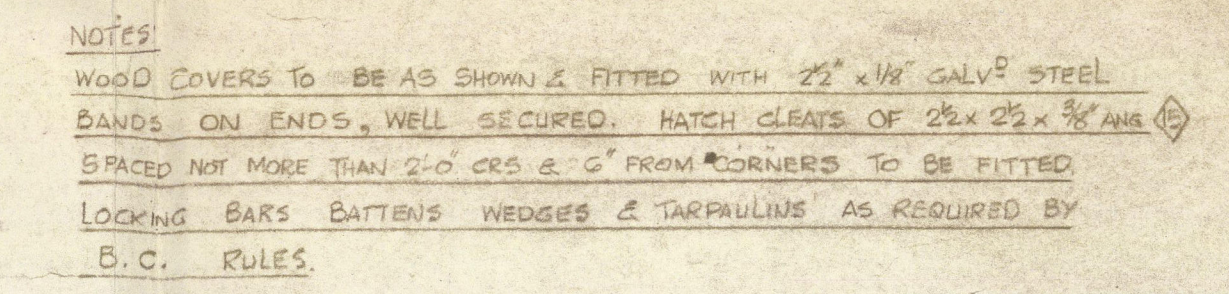 NOTES
WOOD COVERS TO BE AS SHOWN & FITTED WITH 2½" x 1/8" GALVᴰ STEEL
BANDS ON ENDS, WELL SECURED. HATCH CLEATS OF 2½ x 2½ x ⅜" ANG 15
SPACED NOT MORE THAN 2'-0" CRS & 6" FROM CORNERS TO BE FITTED
LOCKING BARS BATTENS WEDGES & TARPAULINS AS REQUIRED BY
B.C. RULES.